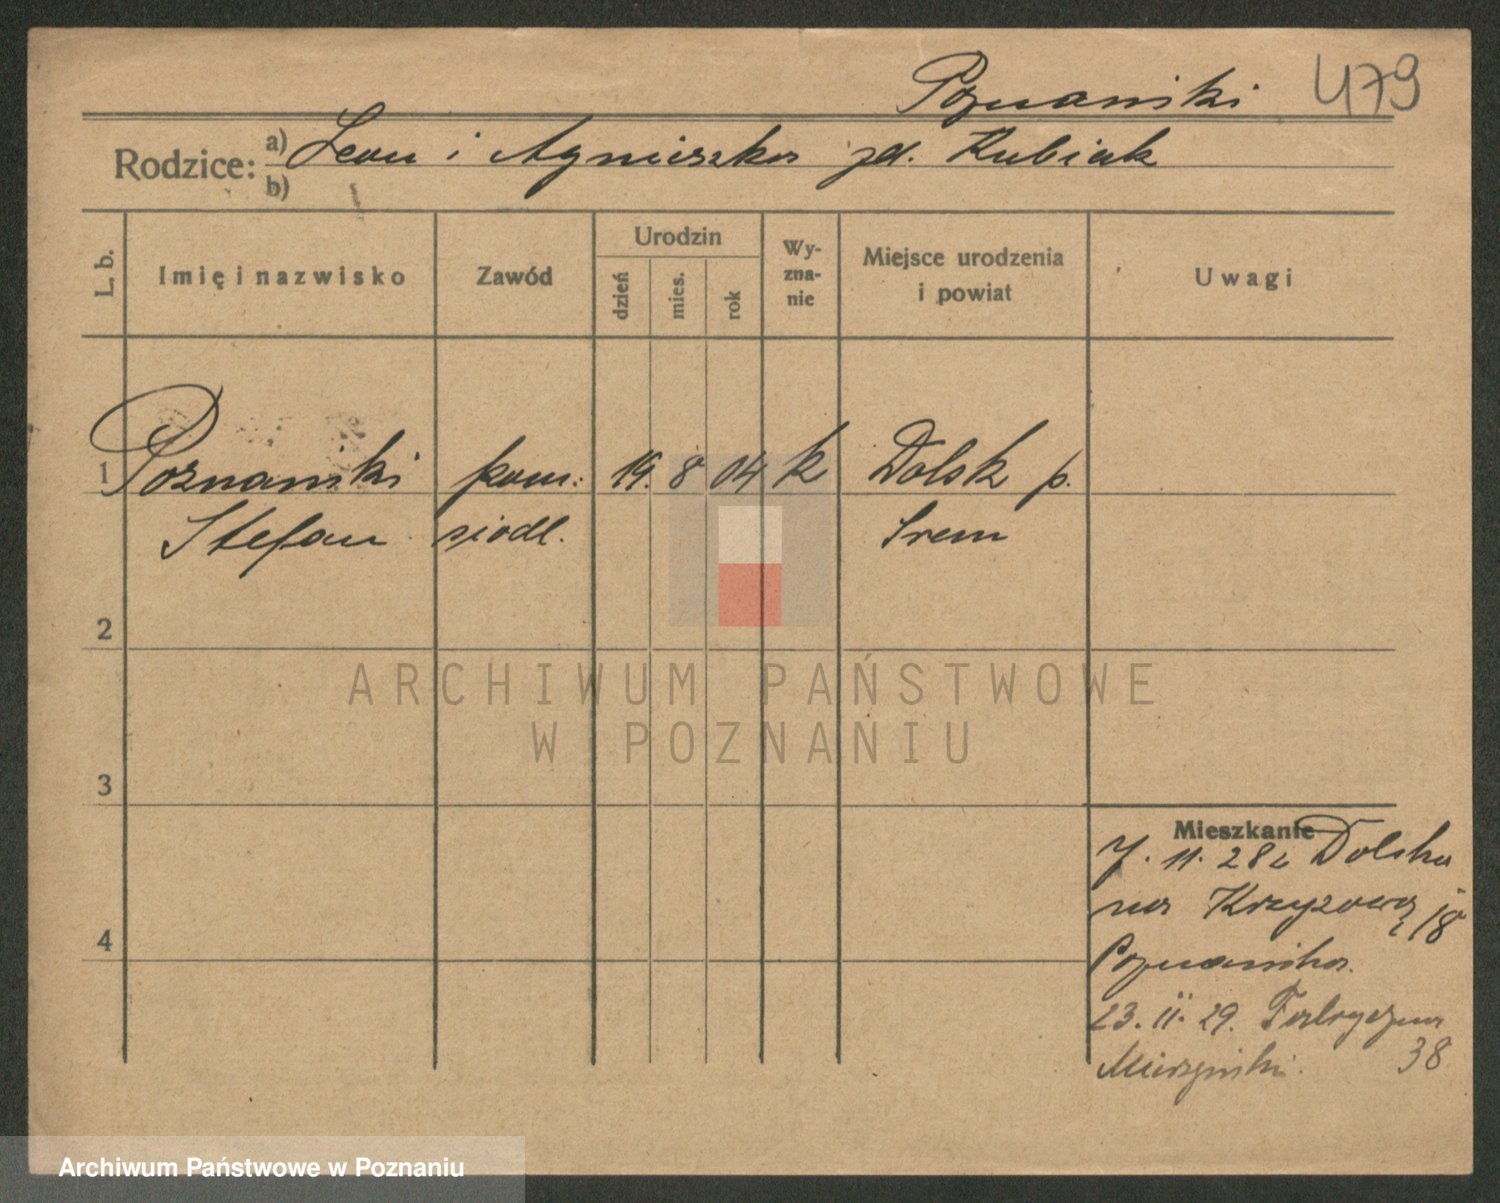 Poznański 479
Rodzice: a) Leon i Agnieszka zd. Kubiak
b)
L. b. Imię i nazwisko Zawód Urodzin dzień mies. rok Wy-zna-nie Miejsce urodzenia i powiat Uwagi
1 Poznański pom: 19. 8 04 k Dolsk p.
Stefan siodl. Srem
2
ARCHIWUM PAŃSTWOWE
W POZNANIU
3
Mieszkanie
7. 11. 28 z Dolska
na Krzyżową 18
Poznańska.
4
23. II. 29. Fabryczna
38
Archiwum Państwowe w Poznaniu